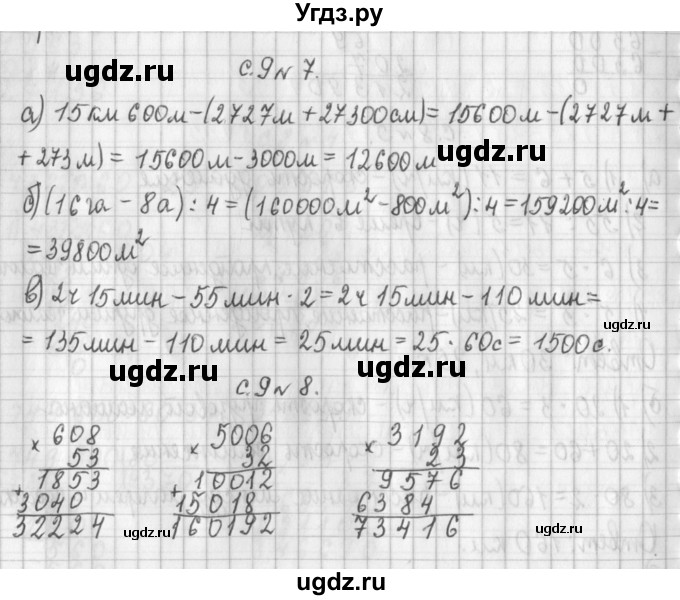 Угдз.ру
ugdz.ru
с.9 № 7.
а) 15 км 600 м - (2727 м + 27300 см) = 15600 м - (2727 м +
+ 273 м) = 15600 м - 3000 м = 12600 м
ugdz.ru
б) (16 га - 8 а) : 4 = (160000 м² - 800 м²) : 4 = 159200 м² : 4 =
= 39800 м²
в) 2 ч 15 мин - 55 мин · 2 = 2 ч 15 мин - 110 мин =
ugdz.ru
= 135 мин - 110 мин = 25 мин = 25 · 60 с = 1500 с.
ugdz.ru
ugdz.ru
с.9 № 8.
× 608 × 5006 × 3192
53 32 23
1853 10012 9576
+ 3040 + 15018 6384
32224 160192 73416
ugdz.ru
ugdz.ru
ugdz.ru